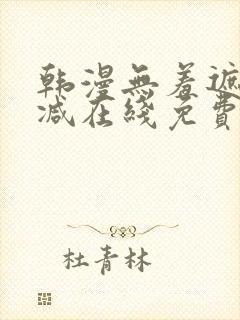 韩漫無羞遮
减在綫免費
杜青林